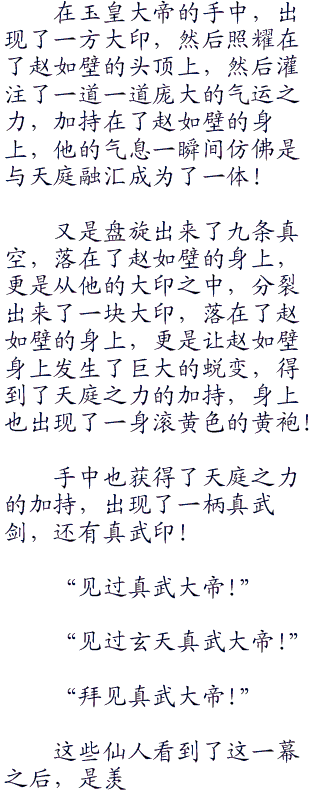 在玉皇大帝的手中，出
现了一方大印，然后照耀在
了赵如壁的头顶上，然后灌
注了一道一道庞大的气运之
力，加持在了赵如壁的身
上，他的气息一瞬间仿佛是
与天庭融汇成为了一体！
又是盘旋出来了九条真
空，落在了赵如壁的身上，
更是从他的大印之中，分裂
出来了一块大印，落在了赵
如壁的身上，更是让赵如壁
身上发生了巨大的蜕变，得
到了天庭之力的加持，身上
也出现了一身滚黄色的黄袍！
手中也获得了天庭之力
的加持，出现了一柄真武
剑，还有真武印！
“见过真武大帝！”
“见过玄天真武大帝！”
“拜见真武大帝！”
这些仙人看到了这一幕
之后，是羡